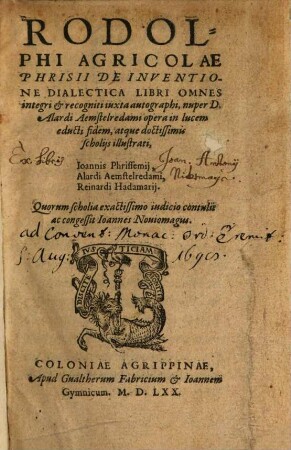 RODOL-
PHI AGRICOLAE
PHRISII DE INVENTIO-
NE DIALECTICA LIBRI OMNES
integri & recogniti iuxta autographi, nuper D.
Alardi Aemstelredami opera in lucem
educti fidem, atque doctissimis
scholijs illustrati,
Ex Libris
Ioannis Phrissemij,
Alardi Aemstelredami,
Reinardi Hadamarij.
Joan. Antonij
Quorum scholia exactissimo iudicio contulit
ac congessit Ioannes Nouiomagus.
ad Convent: Monac: ord: Eremit:
S: Aug:
IVS TICIAM
COLONIAE AGRIPPINAE,
Apud Gualtherum Fabricium & Ioannem
Gymnicum. M. D. LXX.